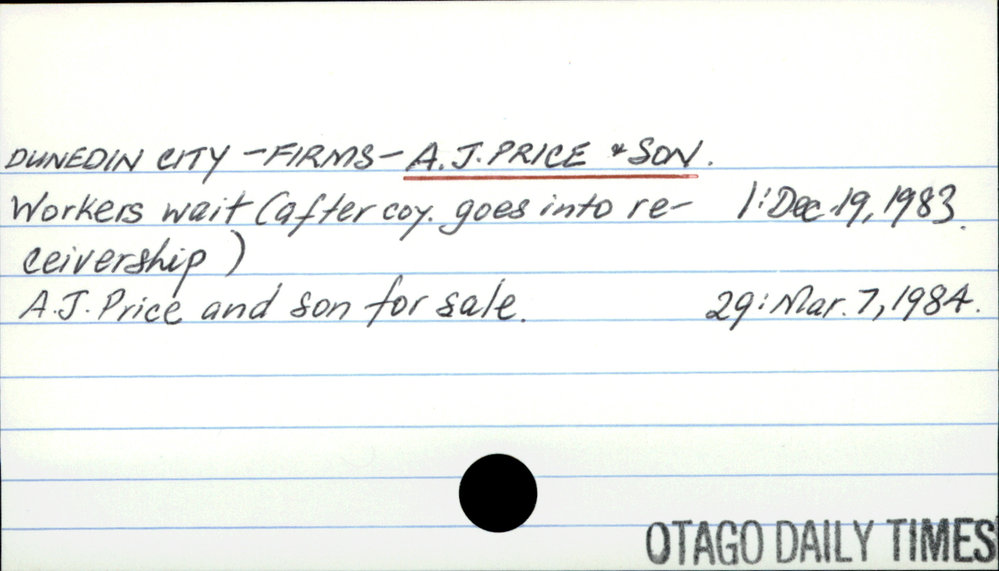 DUNEDIN CITY - FIRMS - A. J. PRICE & SON.
Workers wait (after coy. goes into re- 1: Dec. 19, 1983.
ceivership)
A.J. Price and son for sale. 29: Mar. 7, 1984.
OTAGO DAILY TIMES